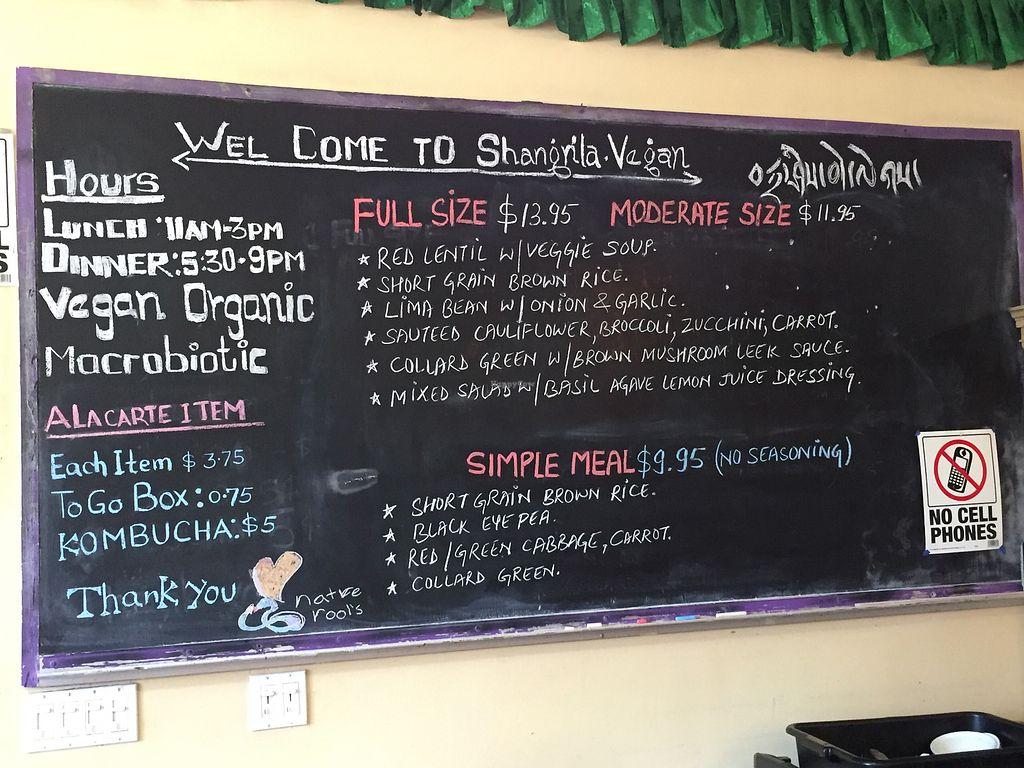 WEL COME TO Shangrila.Vegan
Hours
LUNCH : 11AM-3PM
DINNER: 5:30-9PM
Vegan Organic
Macrobiotic
ALACARTE ITEM
Each Item $ 3.75
To Go Box: 0.75
KOMBUCHA: $5
Thank You
native
roots
FULL SIZE $13.95 MODERATE SIZE $11.95
★ RED LENTIL W/VEGGIE SOUP.
★ SHORT GRAIN BROWN RICE.
★ LIMA BEAN W/ONION & GARLIC.
★ SAUTEED CAULIFLOWER, BROCCOLI, ZUCCHINI, CARROT.
★ COLLARD GREEN W/BROWN MUSHROOM LEEK SAUCE.
★ MIXED SALAD W/BASIL AGAVE LEMON JUICE DRESSING.
SIMPLE MEAL $9.95 (NO SEASONING)
★ SHORT GRAIN BROWN RICE.
★ BLACK EYE PEA.
★ RED/GREEN CABBAGE, CARROT.
★ COLLARD GREEN.
NO CELL
PHONES